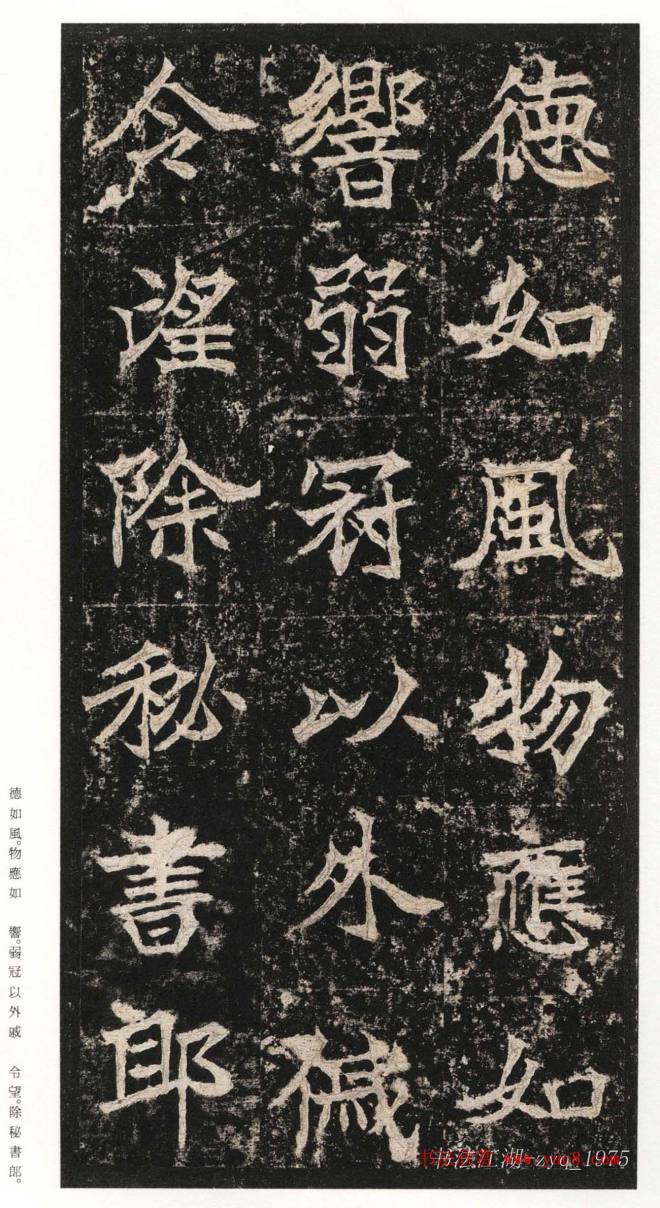 德如風物應如
響弱冠以外戚
令望除秘書郎
德如風。物應如 響。弱冠以外戚 令望。除秘書郎。